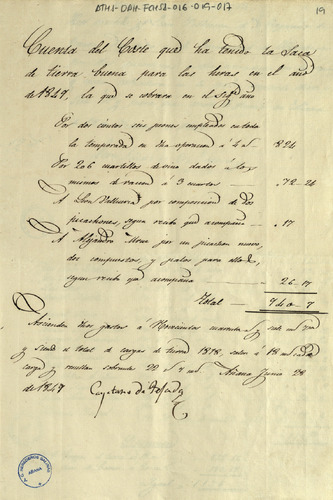 ATHA-DAH-FCHSA-016-019-017
19
Cuenta del Coste que ha tenido la Saca
de tierra buena para las heras en el año
de 1847, la que se cobrara en el año
Por dos cientos seis peones empleados en toda
la temporada en dha operacion á 4 r. 824
Por 206 cuartillos de vino dados á los
mismos de racion á 3 cuartos 72-24
A Leon Valluerca por composicion de dos
picachones, segun recibo que acompaña 17
A Alejandro por un picachon nuevo,
dos compuestos, y palos para
segun recibo que acompaña 26-17
Total 940-7
Ascienden dhos gastos á Novecientos cuarenta y siete mrs
y siendo el total de cargas de tierra 1818, salen á 18 mrs cada
carga y resultan sobrantes 22 r. mrs. Añana Junio 28
de 1847
Cayetano de
AÑANA